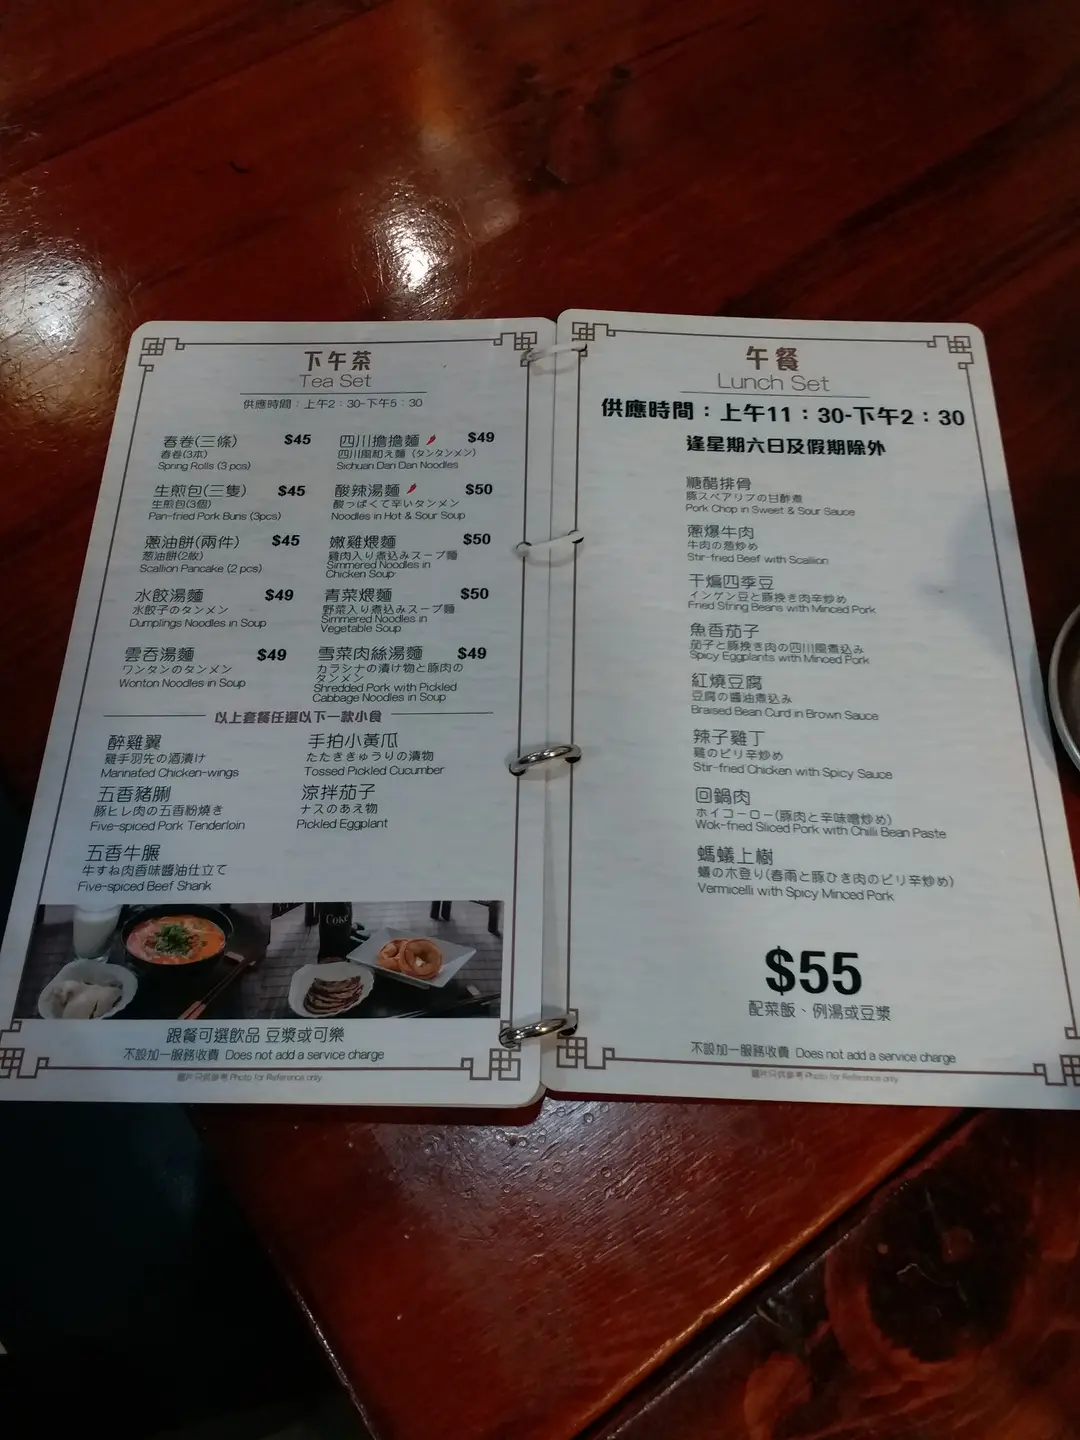 下午茶
Tea Set
供應時間：上午2：30-下午5：30
春卷(三條) $45
春卷(3本)
Spring Rolls (3 pcs)
生煎包(三隻) $45
生煎包(3個)
Pan-fried Pork Buns (3pcs)
蔥油餅(兩件) $45
葱油餅(2枚)
Scallion Pancake (2 pcs)
水餃湯麵 $49
水餃子のタンメン
Dumplings Noodles in Soup
雲吞湯麵 $49
ワンタンのタンメン
Wonton Noodles in Soup
四川擔擔麵 $49
四川風和え麺（タンタンメン）
Sichuan Dan Dan Noodles
酸辣湯麵 $50
酸っぱくて辛いタンメン
Noodles in Hot & Sour Soup
嫩雞煨麵 $50
雞肉入り煮込みスープ麵
Simmered Noodles in
Chicken Soup
青菜煨麵 $50
野菜入り煮込みスープ麵
Simmered Noodles in
Vegetable Soup
雪菜肉絲湯麵 $49
カラシナの漬け物と豚肉の
タンメン
Shredded Pork with Pickled
Cabbage Noodles in Soup
以上套餐任選以下一款小食
醉雞翼
雞手羽先の酒漬け
Marinated Chicken-wings
五香豬脷
豚ヒレ肉の五香粉燒き
Five-spiced Pork Tenderloin
五香牛𦟌
牛すね肉香味醬油仕立て
Five-spiced Beef Shank
手拍小黃瓜
たたききゅうりの漬物
Tossed Pickled Cucumber
涼拌茄子
ナスのあえ物
Pickled Eggplant
Coke
跟餐可選飲品 豆漿或可樂
不設加一服務收費 Does not add a service charge
圖片只供參考 Photo for Reference only
午餐
Lunch Set
供應時間：上午11：30-下午2：30
逢星期六日及假期除外
糖醋排骨
豚スペアリブの甘酢煮
Pork Chop in Sweet & Sour Sauce
蔥爆牛肉
牛肉の葱炒め
Stir-fried Beef with Scallion
干煸四季豆
インゲン豆と豚挽き肉辛炒め
Fried String Beans with Minced Pork
魚香茄子
茄子と豚挽き肉の四川風煮込み
Spicy Eggplants with Minced Pork
紅燒豆腐
豆腐の醬油煮込み
Braised Bean Curd in Brown Sauce
辣子雞丁
雞のピリ辛炒め
Stir-fried Chicken with Spicy Sauce
回鍋肉
ホイコーロー(豚肉と辛味噌炒め)
Wok-fried Sliced Pork with Chilli Bean Paste
螞蟻上樹
蟻の木登り(春雨と豚ひき肉のピリ辛炒め)
Vermicelli with Spicy Minced Pork
$55
配菜飯、例湯或豆漿
不設加一服務收費 Does not add a service charge
圖片只供參考 Photo for Reference only